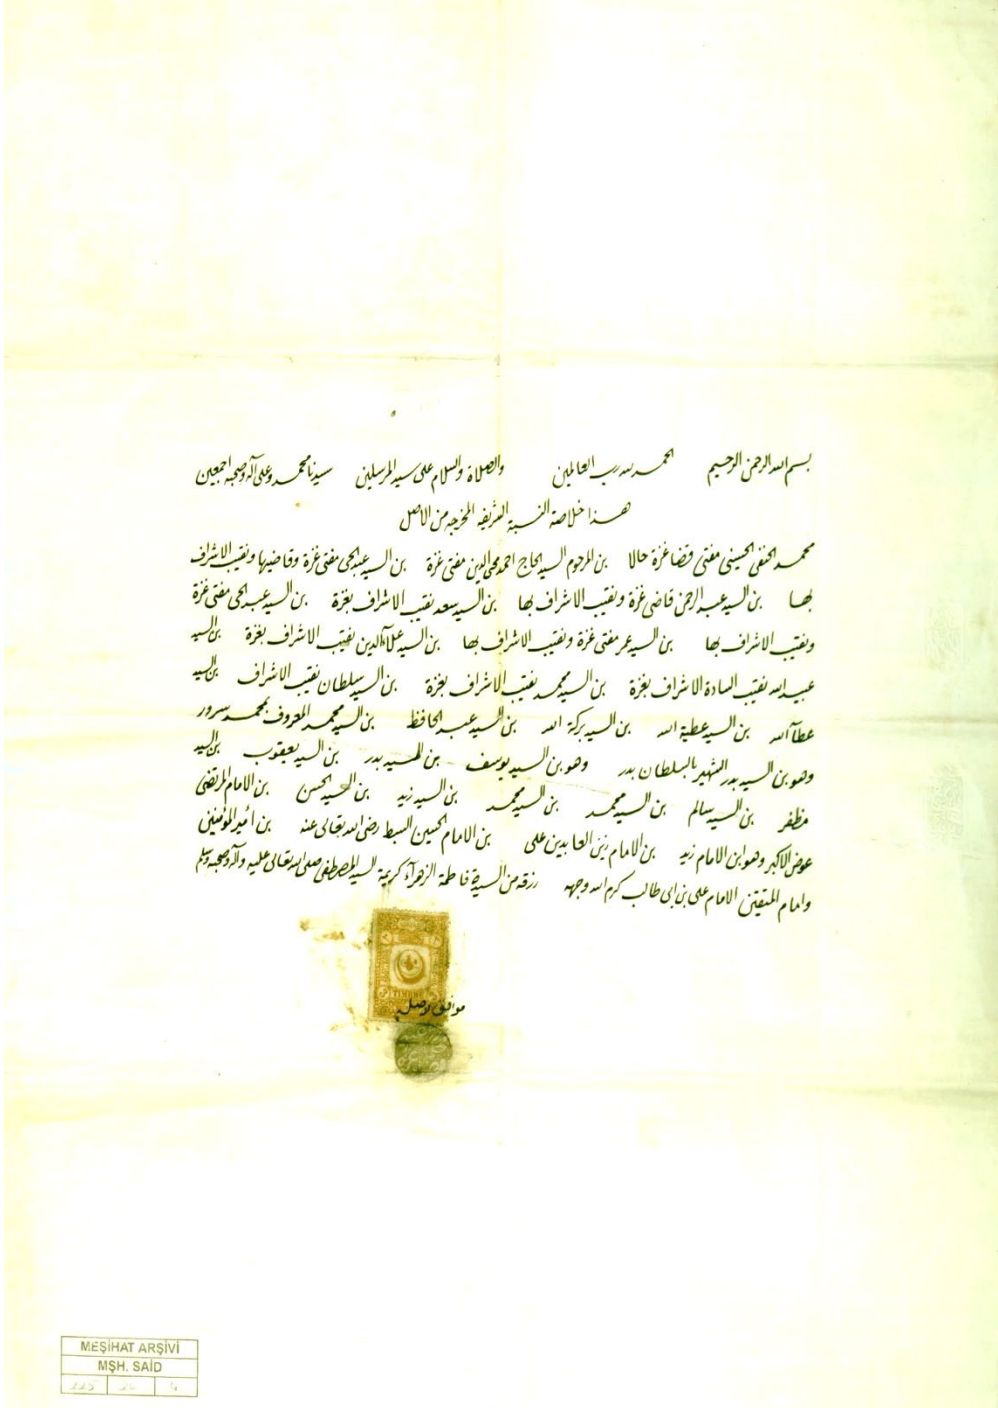 بسم الله الرحمن الرحيم الحمد لله رب العالمين والصلاة والسلام على سيد المرسلين سيدنا محمد وعلى آله وصحبه اجمعين
هذا خلاصة النسبة الشريفة المخرجه من الاصل
محمد الحنفى الحسينى مفتى قضا غزة حالا بن المرحوم السيد الحاج احمد محى الدين مفتى غزة بن السيد عبد الحى مفتى غزة وقاضيها ونقيب الاشراف
بها بن السيد عبد الرحمن قاضى غزة ونقيب الاشراف بها بن السيد سعد نقيب الاشراف بغزة بن السيد عبد الحى مفتى غزة
ونقيب الاشراف بها بن السيد عمر مفتى غزة ونقيب الاشراف بها بن السيد علاء الدين نقيب الاشراف بغزة بن السيد
عبيد الله نقيب السادة الاشراف بغزة بن السيد محمد نقيب الاشراف بغزة بن السيد سلطان نقيب الاشراف بن السيد
عطآ الله بن السيد عطية الله بن السيد بركة الله بن السيد عبد الحافظ بن السيد محمد المعروف بمحمد سرور
وهو بن السيد بدر الشهير بالسلطان بدر وهو بن السيد يوسف بن السيد بدر بن السيد يعقوب بن السيد
مظفر بن السيد سالم بن السيد محمد بن السيد محمد بن السيد زيد بن السيد الحسن بن الامام المرتضى
عوض الاكبر وهو ابن الامام زيد بن الامام زين العابدين على بن الامام الحسين السبط رضى الله تعالى عنه بن أمير المؤمنين
وامام المتقين الامام على بن ابى طالب كرم الله وجهه رزقه من السيدة فاطمة الزهرآء كريمة السيد المصطفى صلى الله تعالى عليه وآله وصحبه وسلم
موافق لاصله
MEŞİHAT ARŞİVİ
MŞH. SAİD
225